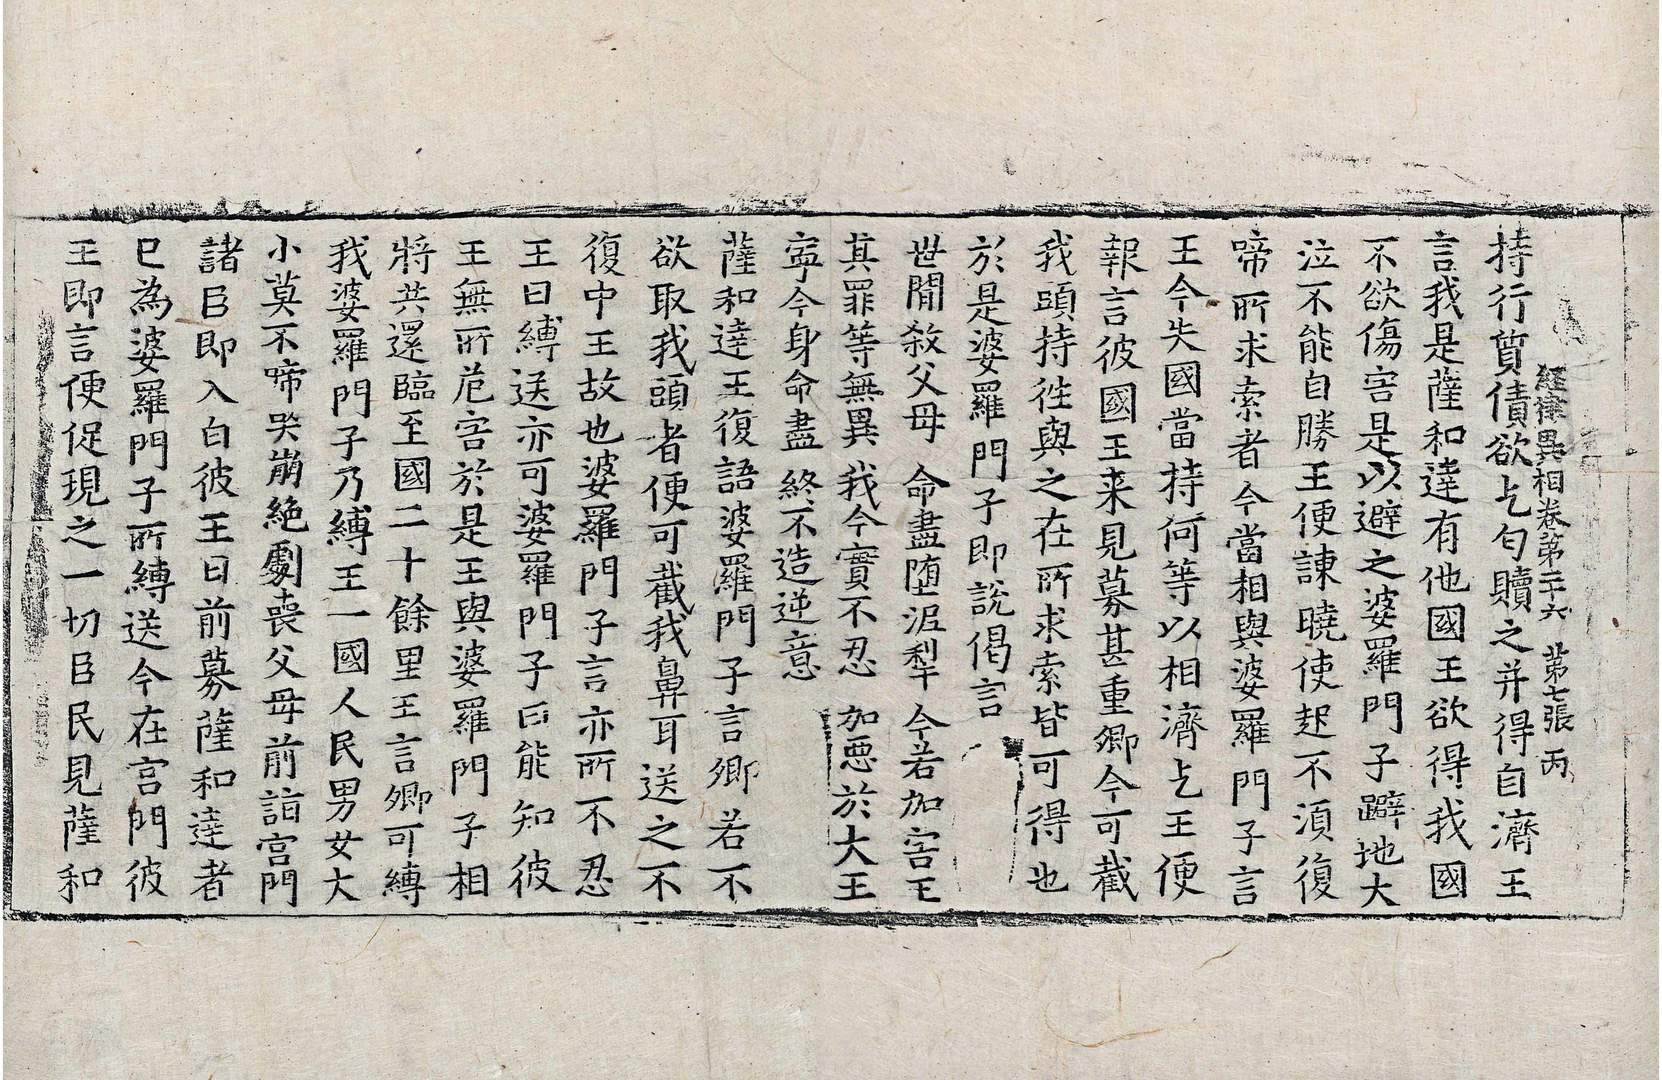 經律異相卷第二十六 第七張 丙
持行質債欲乞匄贖之并得自濟王
言我是薩和達有他國王欲得我國
不欲傷害是以避之婆羅門子躃地大
泣不能自勝王便諫曉使起不湏復
啼所求索者今當相與婆羅門子言
王今失國當持何等以相濟乞王便
報言彼國王来見募甚重卿今可截
我頭持徃與之在所求索皆可得也
於是婆羅門子即說偈言
世閒殺父母 命盡堕泥犁 今若加害王
其罪等無異 我今實不忍 加惡於大王
寧今身命盡 終不造逆意
薩和達王復語婆羅門子言卿若不
欲取我頭者便可截我鼻耳送之不
復中王故也婆羅門子言亦所不忍
王曰縛送亦可婆羅門子曰能知彼
王無所危害於是王與婆羅門子相
將共還臨至國二十餘里王言卿可縛
我婆羅門子乃縛王一國人民男女大
小莫不啼哭崩絕劇喪父母前詣宮門
諸臣即入白彼王曰前募薩和達者
已為婆羅門子所縛送今在宮門彼
王即言便促現之一切臣民見薩和